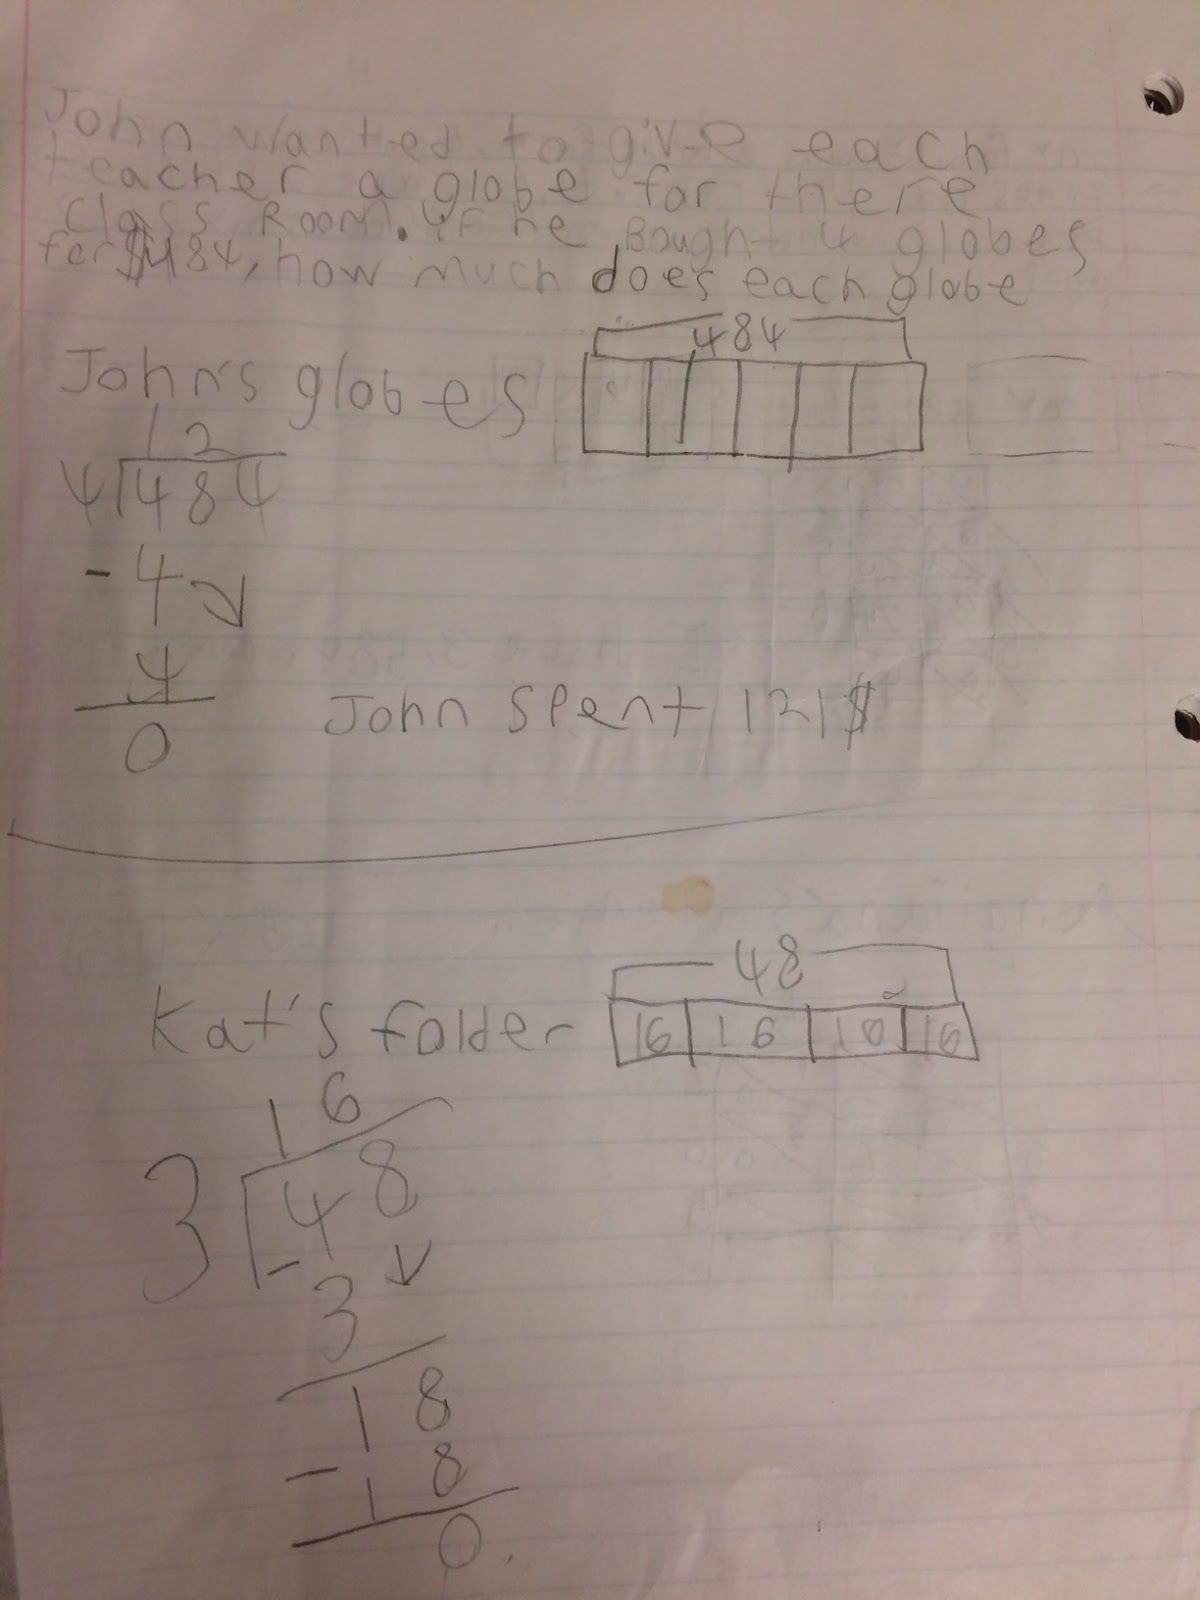 John wanted to give each
teacher a globe for there
Class Room. if he Bought 4 globes
for $484, how much does each globe
484
John's globes
12
4 484
- 4
4
0
John spent 121$
48
Kat's folder 16 16 16 16
16
3 48
- 3
18
- 18
0